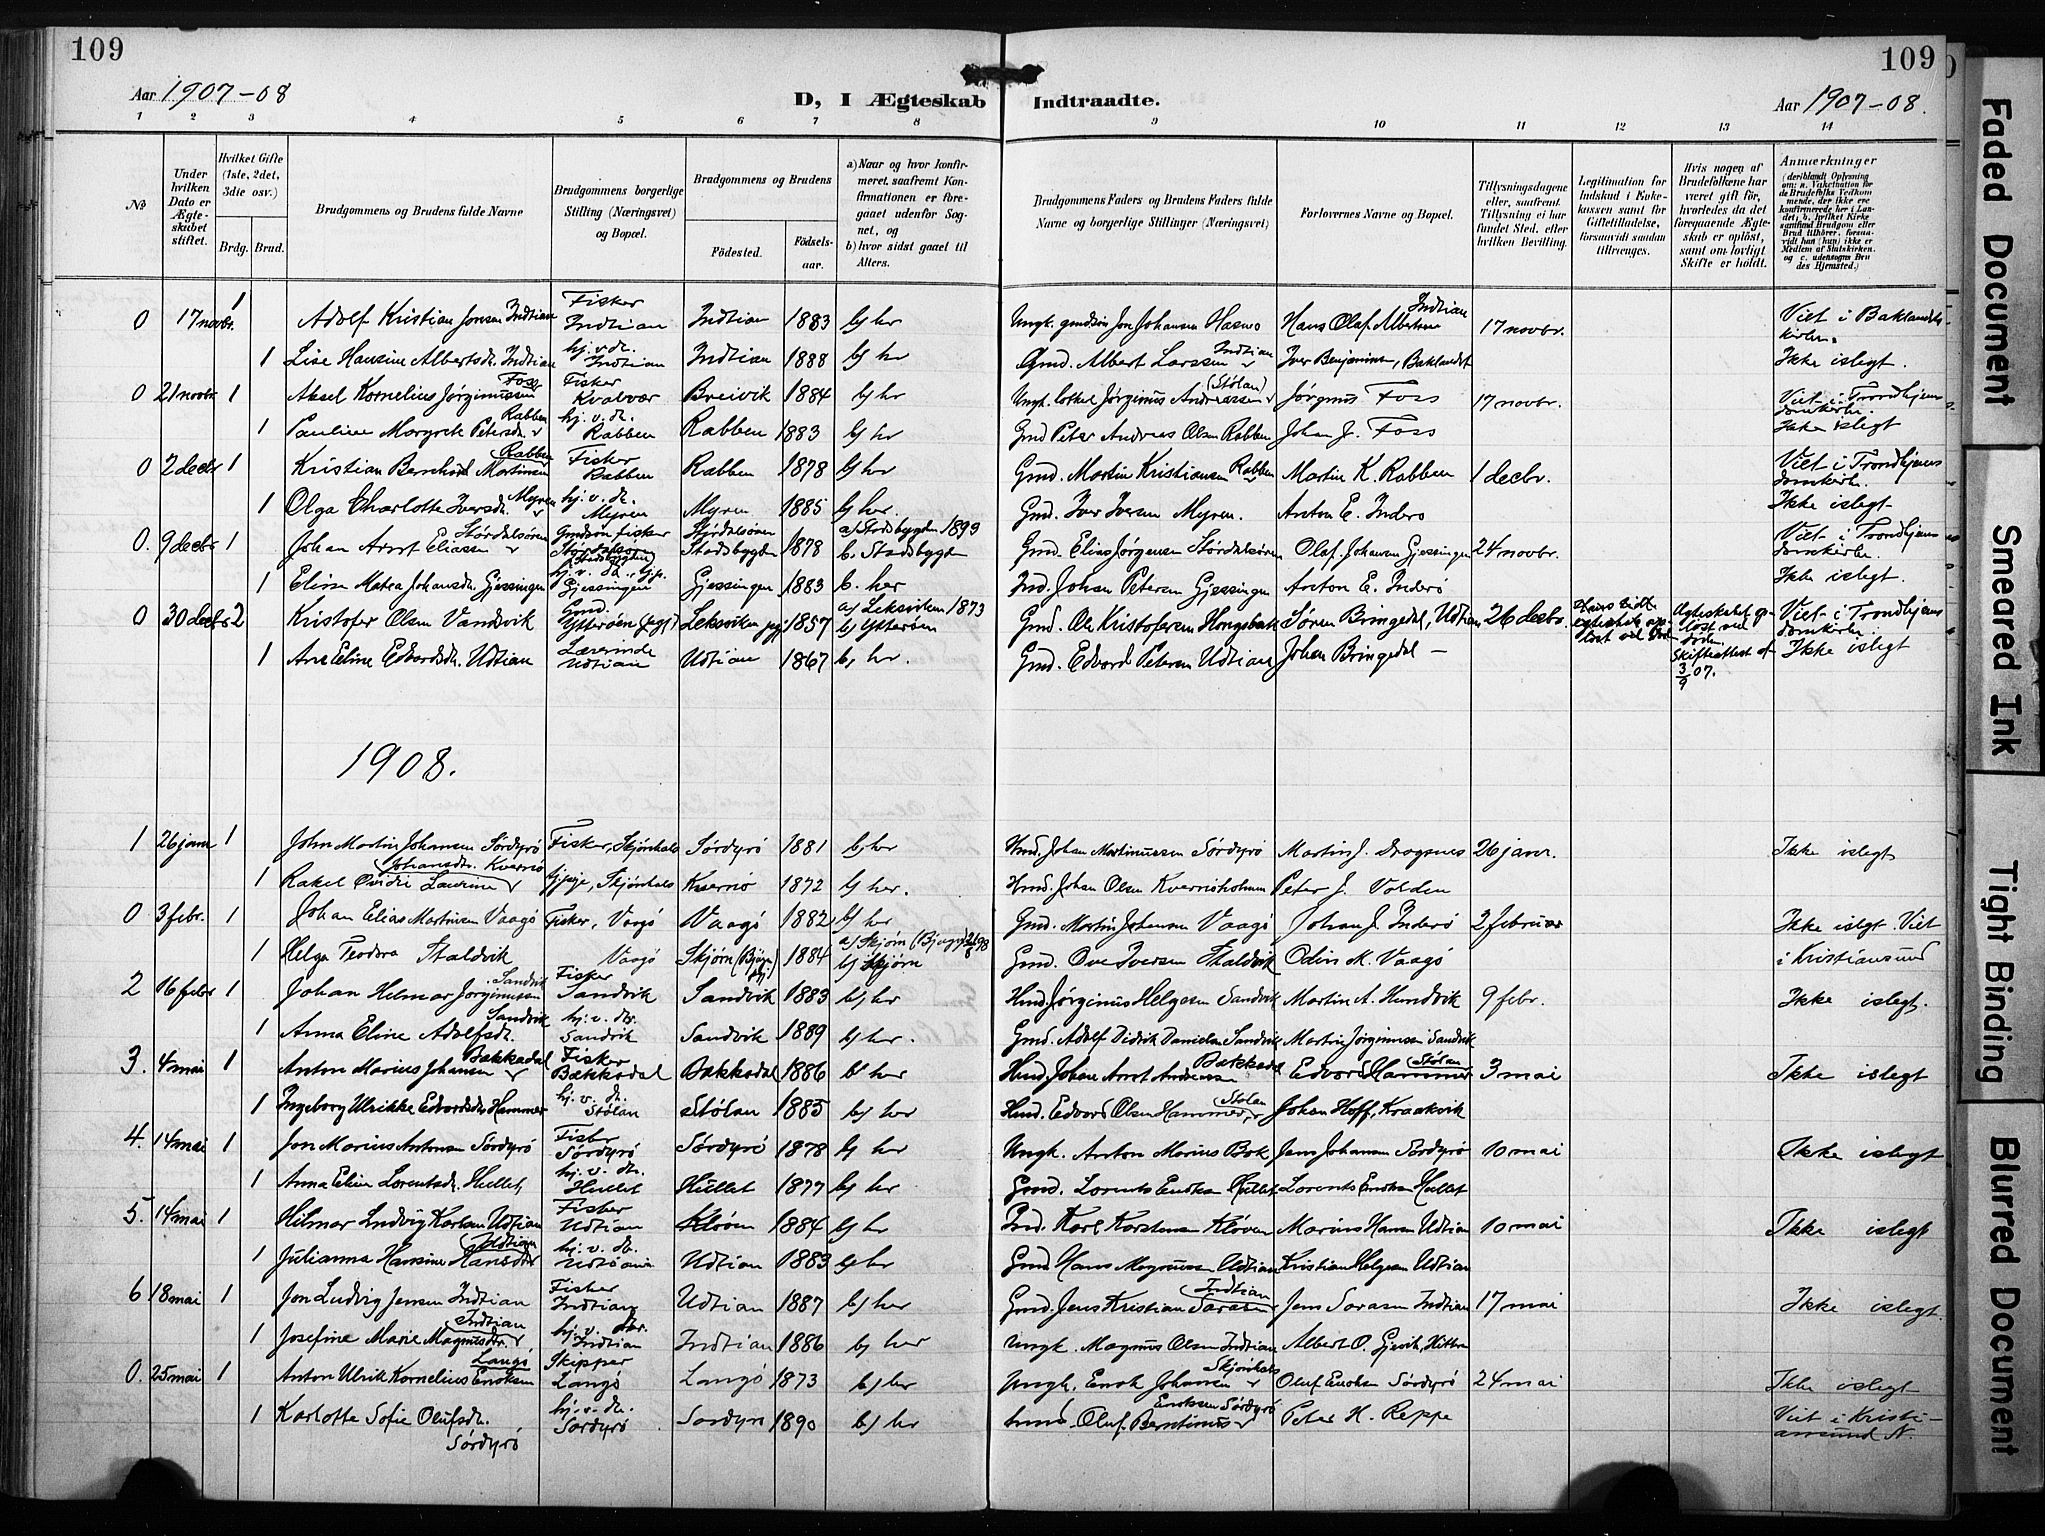 109
109
Aar 1907-08
D, I Ægteskab Indtraadte.
Aar 1907-08.
1 2 3 4 5 6 7 8 9 10 11 12 13 14
№
Under hvilken Dato er Ægteskabet stiftet.
Hvilket Gifte (1ste, 2det, 3die osv.)
Brdg. Brud.
Brudgommens og Brudens fulde Navne
Brudgommens borgerlige Stilling (Næringsvei) og Bopæl.
Brudgommens og Brudens
Födested. Födsels-aar.
a) Naar og hvor konfirmeret, saafremt Konfirmationen er foregaaet udenfor Sognet, og
b) hvor sidst gaaet til Alters.
Brudgommens Faders og Brudens Faders fulde Navne og borgerlige Stillinger (Næringsvei)
Forlovernes Navne og Bopæl.
Tillysningsdagene eller, saafremt Tillysning ei har fundet Sted, efter hvilken Bevilling.
Legitimation for Indskud i Enkekassen samt for Giftetilladelse, forsaavidt saadan tiltrænges.
Hvis nogen af Brudefolkene har været gift för, hvorledes da det foregaaende Ægteskab er oplöst, samt om lovligt Skifte er holdt.
Anmærkninger
0 17 novbr. 1 Adolf Kristian Jonsen Indtian Fisker Indtian Indtian 1883 b) her Ungk. gmdsön Jon Johansen Hans Olaf Albertsen Indtian 17 novbr. Viet i Baklandets kirke.
1 Lise Hansine Albertsdr. Indtian hj. v. dr. Indtian Indtian 1888 b) her Gmd. Albert Larssen Indtian Iver Benjaminsen, Baklandet Ikke islegt.
0 21 novbr 1 Aksel Kornelius Jørginussen Foss Fisker Kvalvær Breivik 1884 b) her Ungk. Jørginus Andreassen (Stølan) Jørginus Foss 17 novbr. Viet i Trondhjems domkirke.
1 Pauline Margrete Petersdr. Rabben hj. v. dr. Rabben Rabben 1883 b) her Gmd Peter Andreas Olsen Rabben Johan J. Foss Ikke islegt
0 2 decbr 1 Kristian Bernhard Martinsen Rabben Fisker Rabben Rabben 1878 b) her Gmd. Martin Kristiansen Rabben Martin K. Rabben 1 decbr. Viet i Trondhjems domkirke.
1 Olga Charlotte Iversdr. Myren hj. v. dr. Myren Myren 1885 b) her. Gmd. Iver Iversen Myren. Anton E. Inderø Ikke islegt
0. 9 decbr 1 Johan Arnt Eliassen Størdalsøren Gmdsøn fisker Stadsbygden 1878 a) Stadsbygden 1893 b. Stadsbygden Gmd. Elias Jørgensen Størdalsøren Olaf Johansen Gjessingen 24 novbr. Viet i Trondhjems domkirke.
1 Elina Matea Johansdr. Gjessingen hj. v. dr. Gjessingen Gjessingen 1883 b. her Johan Petersen Gjessingen Anton E. Inderø Ikke islegt.
0 30 decbr 2 Kristofer Olsen Vandvik Gmd. Ytterøen Leksviken 1857 a) Leksviken 1873 b) Ytterøen Gmd. Ole Kristofersen Søren Bringedal, Udtian 26 decbr. Hans sidste egteskab Egteskabet opløst ved døden Skifteattest af 3/9 07. Viet i Trondhjems domkirke.
1 Ane Eline Edvardsdr. Udtian Lærerinde Udtian Udtian 1867 b, her. Gmd. Edvard Petersen Udtian Johan Bringedal - Ikke islegt
1908.
1 26 janr 1 John Martin Johansen Sørdyrø Fisker, Skjønhals Sørdyrø 1881 b) her Johan Martinussen Sørdyrø Martin J. Dragsnes 26 janr. Ikke islegt
1 Rakel Ovidie Laurine Johansdr. Kvernø Skjønhals Kvernø 1872 b) her. Johan Olsen Kvernøholmen Peter J. Volden
0 3 febr. 1 Johan Elias Martinsen Vaagø Fisker, Vaagø Vaagø 1882 b) her Gmd. Martin Johansen Vaagø Johan J. Inderø 2 februar Ikke islegt. Viet
1 Helga Teodora Staldvik Vaagø Skjørn 1884 b) Skjørn Gmd. Ove Iversen Staldvik Odin M. Vaagø i Kristiansund
2 16 febr 1 Johan Hilmar Jørginussen Sandvik Fisker Sandvik Sandvik 1883 b) her Jørginus Helgesen Sandvik Martin A. Hundvik 9 febr. Ikke islegt.
1 Anna Eline Adolfsdr. Sandvik hj. v. dr. Sandvik Sandvik 1889 b) her. Gmd. Adolf Didrik Danielsen Sandvik Martin Jørginussen Sandvik
3. 4 mai 1 Anton Marius Johansen Bækkadal Fisker Bækkadal Bækkadal 1886 b) her Johan Arnt Andreassen Bækkadal Edvard Hammer Stølan 3 mai Ikke islegt
1 Ingeborg Ulrikke Edvardsdr. Hammer hj. v. dr. Stølan Stølan 1885 b) her Edvard Olsen Hammer, Stølan Johan Hoff, Kraakvik
4. 14 mai 1 Jon Marius Antonsen Sørdyrø Fisker Sørdyrø Sørdyrø 1878 b) her Ungk. Anton Marius Bok Jens Johansen Sørdyrø 10 mai Ikke islegt
1 Anna Elise Lorentsdr. Hullet, hj. v. dr. Hullet Hullet 1877 b) her Gmd. Lorents Enoksen Hullet Lorents Enoksen Hullet
5. 14 mai 1 Hilmar Ludvig Karlsen Udtian Fisker Udtian Kløven 1884 b) her Karl Karstensen Kløven Marius Hansen Udtian 10 mai Ikke islegt
1 Julianna Hansine Hansdtr Udtian hj. v. dr. Udtian Udtian 1883 b) her Gmd Hans Magnussen Udtian Kristian Helgesen Udtian
6 18 mai 1 Jon Ludvig Jensen Indtian Fisker Indtian Udtian 1887 b) her Gmd. Jens Kristian Sørensen Indtian Jens Sørensen Indtian 17 mai Ikke islegt.
1 Josefine Marie Magnusdtr. Indtian hj. v. dtr. Indtian Indtian 1886 b) her Ungk. Magnus Olsen Indtian Albert O. Gjesvik, Hitteren
0. 25 mai 1 Anton Ulrik Kornelius Enoksen Langø Skipper Langø Langø 1873 b) her Ungk. Enok Johansen Skjønhals Oluf Enoksen Sørdyrø 24 mai Ikke islegt
1 Karlotte Sofie Olufsdr. Sørdyrø hj. v. dr. Sørdyrø Sørdyrø 1890 b) her Oluf Bentinus Enoksen Sørdyrø Peter H. Reppe Viet i Kristiansund N.
Faded Document
Smeared Ink
Tight Binding
Blurred Document